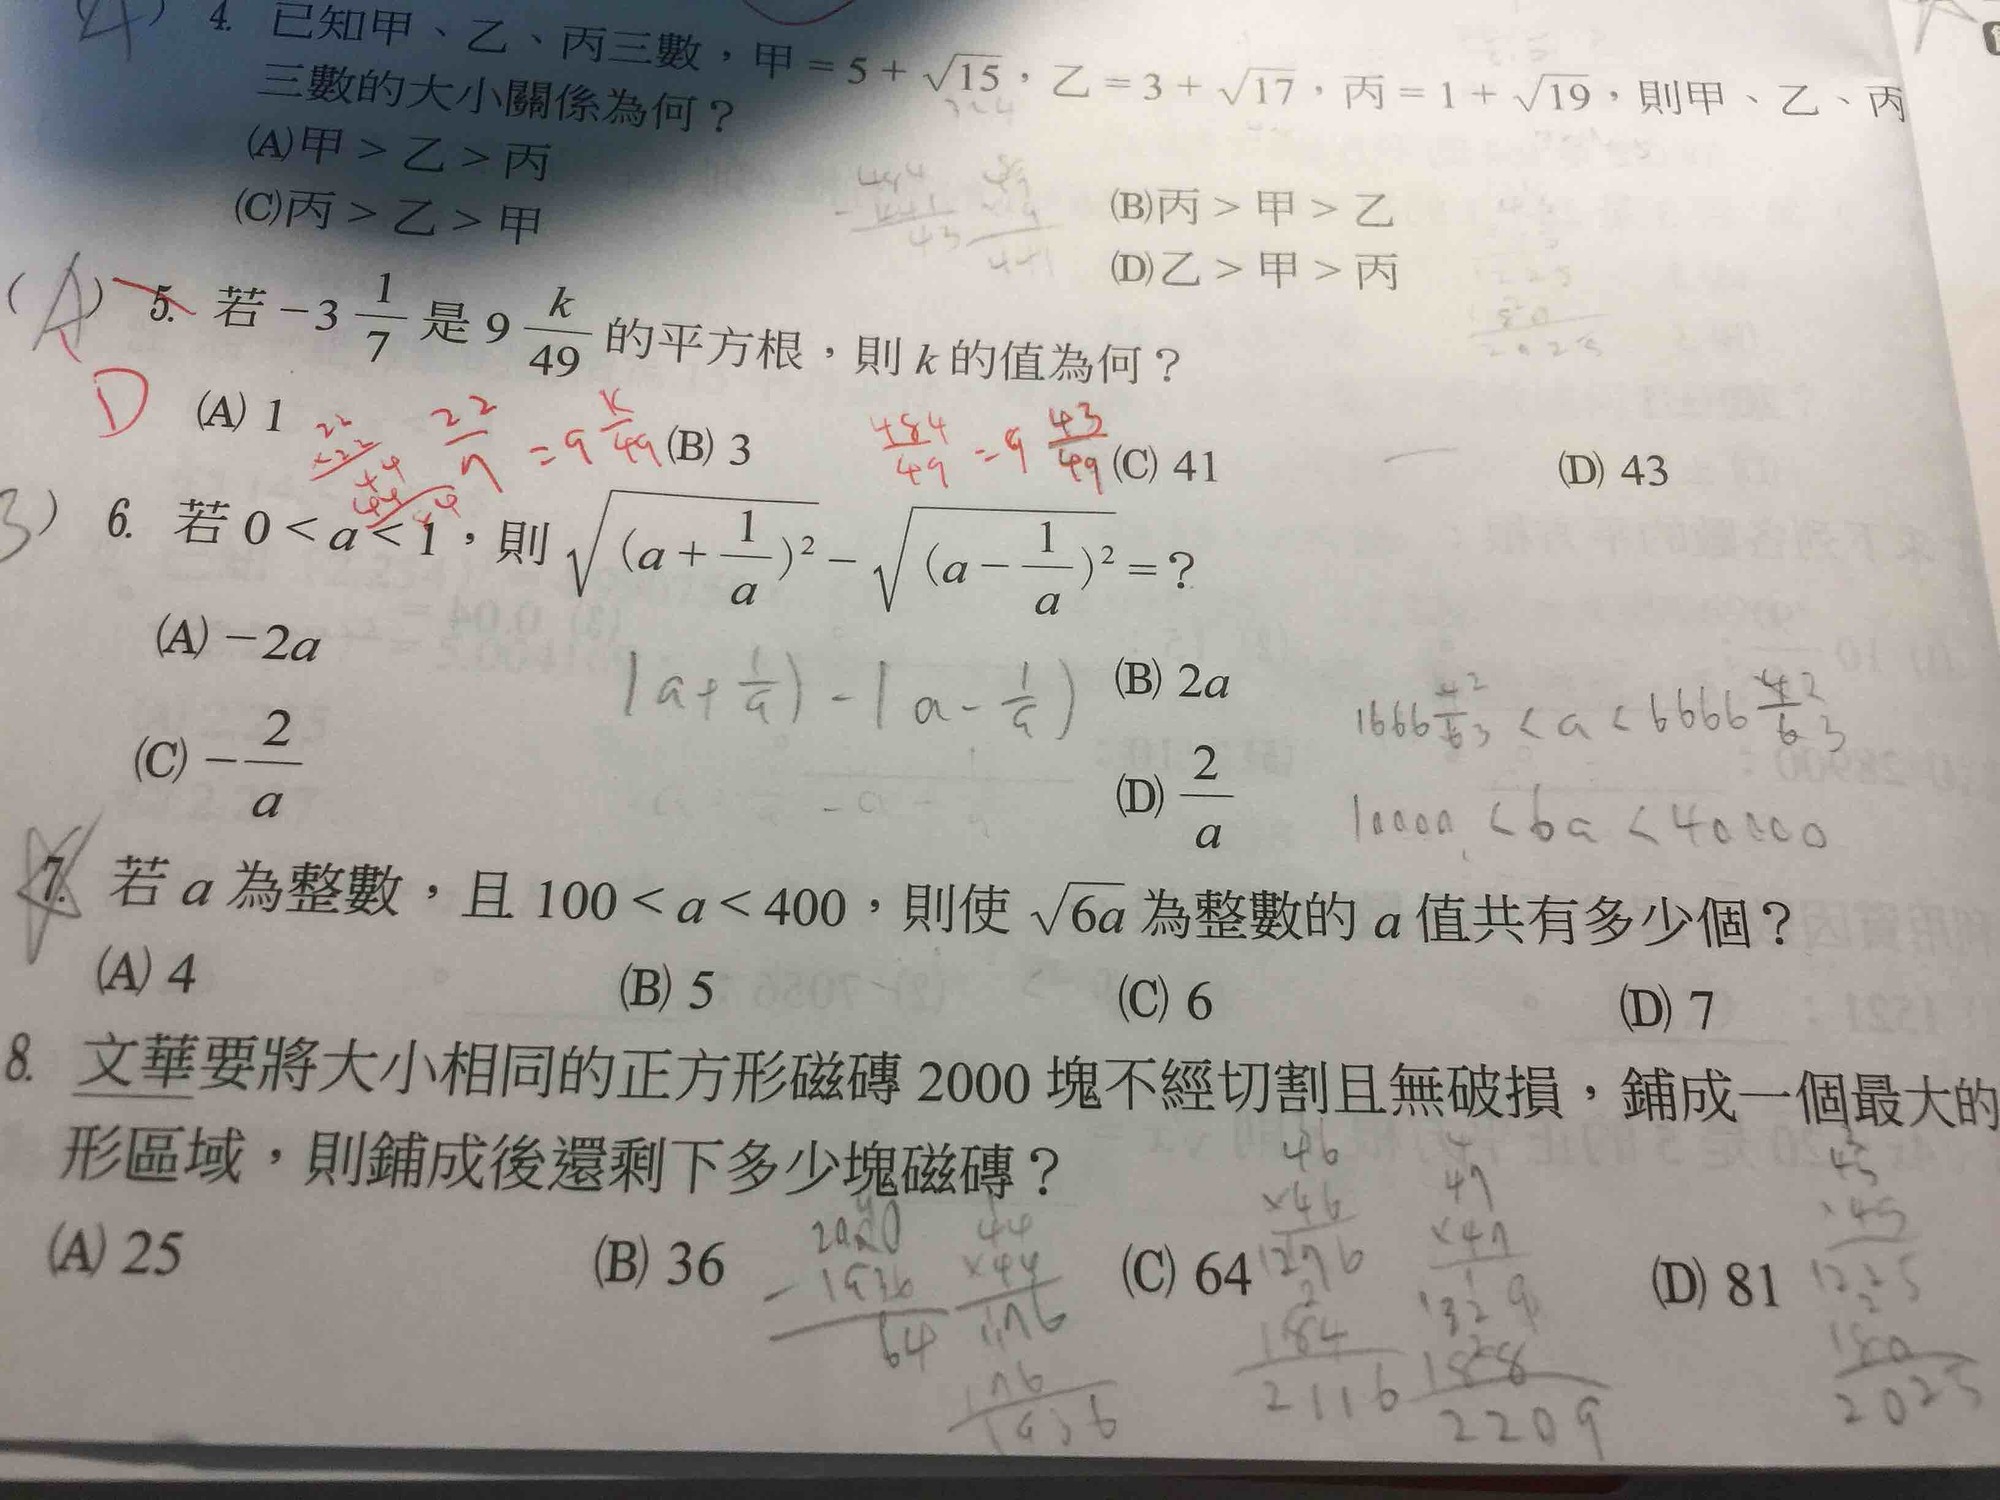 4. 已知甲、乙、丙三數，甲 = 5 + √15，乙 = 3 + √17，丙 = 1 + √19，則甲、乙、丙
三數的大小關係為何？
(A) 甲 > 乙 > 丙
(B) 丙 > 甲 > 乙
(C) 丙 > 乙 > 甲
(D) 乙 > 甲 > 丙
(A) 5. 若 -3 1/7 是 9 k/49 的平方根，則 k 的值為何？
D
(A) 1 (B) 3 (C) 41 (D) 43
22/7 = 9 k/49
484/49 = 9 43/49
6. 若 0 < a < 1，則 √(a + 1/a)² - √(a - 1/a)² = ?
(A) -2a (B) 2a
|a + 1/a| - |a - 1/a|
(C) - 2/a (D) 2/a
1666 4/6 < a < 6666 4/6
10000 < 6a < 40000
7. 若 a 為整數，且 100 < a < 400，則使 √6a 為整數的 a 值共有多少個？
(A) 4 (B) 5 (C) 6 (D) 7
8. 文華要將大小相同的正方形磁磚 2000 塊不經切割且無破損，鋪成一個最大的
形區域，則鋪成後還剩下多少塊磁磚？
(A) 25 (B) 36 (C) 64 (D) 81
- 1936
64
44
×44
176
176
1936
46
×46
276
184
2116
47
×47
329
188
2209
45
×45
225
180
2025